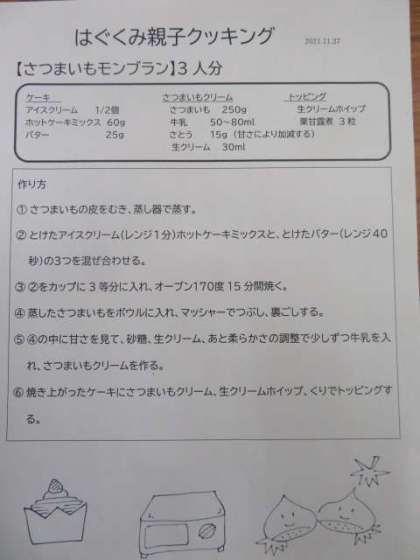 はぐくみ親子クッキング 2021.11.27
【さつまいもモンブラン】3人分
ケーキ さつまいもクリーム トッピング
アイスクリーム 1/2個 さつまいも 250g 生クリームホイップ
ホットケーキミックス 60g 牛乳 50~80ml 栗甘露煮 3粒
バター 25g さとう 15g (甘さにより加減する)
生クリーム 30ml
作り方
① さつまいもの皮をむき、蒸し器で蒸す。
② とけたアイスクリーム(レンジ1分)ホットケーキミックスと、とけたバター(レンジ40
秒)の3つを混ぜ合わせる。
③ ②をカップに3等分に入れ、オーブン170度15分間焼く。
④ 蒸したさつまいもをボウルに入れ、マッシャーでつぶし、裏ごしする。
⑤ ④の中に甘さを見て、砂糖、生クリーム、あと柔らかさの調整で少しずつ牛乳を入
れ、さつまいもクリームを作る。
⑥ 焼き上がったケーキにさつまいもクリーム、生クリームホイップ、くりでトッピングす
る。